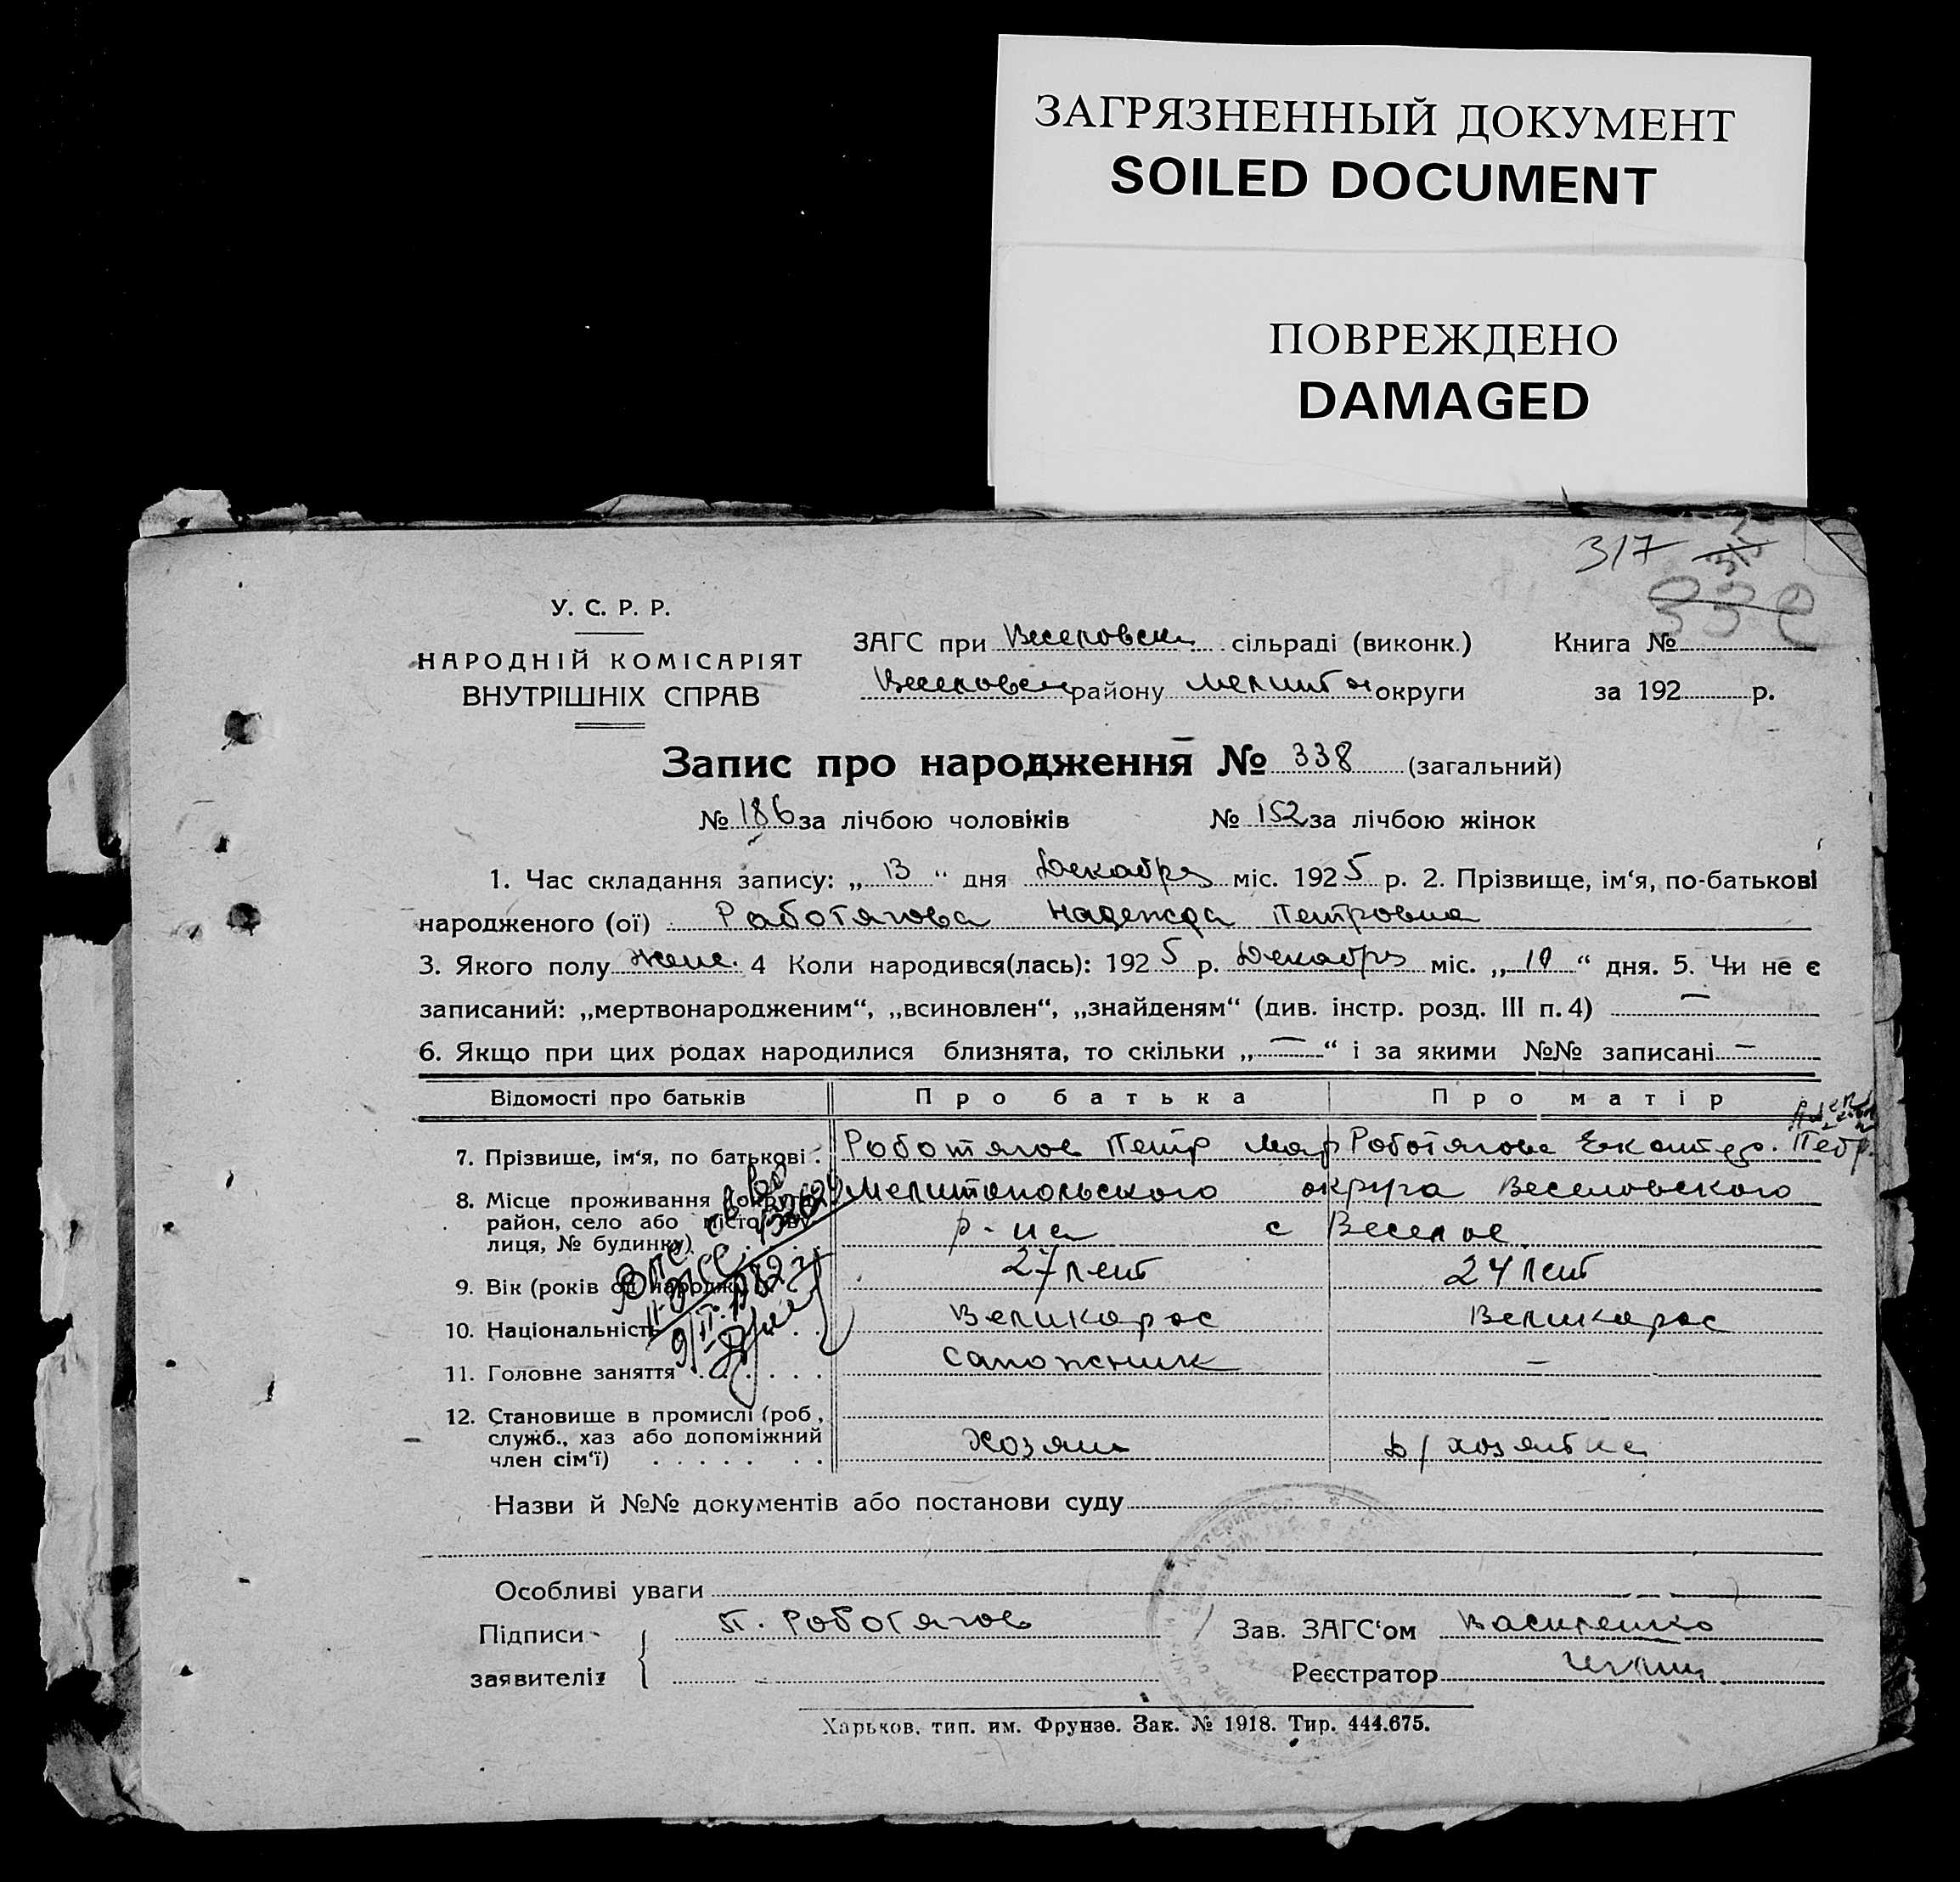 ЗАГРЯЗНЕННЫЙ ДОКУМЕНТ
SOILED DOCUMENT
ПОВРЕЖДЕНО
DAMAGED
317
У. С. Р. Р.
НАРОДНІЙ КОМІСАРІЯТ
ВНУТРІШНІХ СПРАВ
ЗАГС при Веселовск сільраді (виконк.) Книга №
Веселовск району Мелитоп округи за 192 р.
Запис про народження № 338 (загальний)
№ 186 за лічбою чоловіків № 152 за лічбою жінок
1. Час складання запису: „ 13 “ дня Декабря міс. 1925 р. 2. Прізвище, ім‘я, по-батькові
народженого (ої) Работягова Надежда Петровна
3. Якого полу женс. 4 Коли народився(лась): 1925 р. Декабря міс. „ 10 “ дня. 5. Чи не є
записаний: „мертвонародженим“, „всиновлен“, „знайденям“ (див. інстр. розд. III п. 4) —
6. Якщо при цих родах народилися близнята, то скільки „ — “ і за якими №№ записані —
Відомості про батьків Про батька Про матір
7. Прізвище, ім‘я, по батькові . Роботягов Петр Мар Роботягова Екатер. Петр.
8. Місце проживання Мелитопольского округа Веселовского
район, село або місто, ву-
лиця, № будинку) р-на с Веселое
9. Вік (років од народж. 27 лет 24 лет
10. Національність Великорос Великорос
11. Головне заняття Сапожник —
12. Становище в промислі (роб,
служб., хаз або допоміжний
член сім‘ї) Хозяин д/хозяйка
Назви й №№ документів або постанови суду
Особливі уваги
Підписи П. Роботягов Зав. ЗАГС‘ом Василенко
заявителів Реєстратор
Харьков, тип. им. Фрунзе. Зак. № 1918. Тир. 444.675.